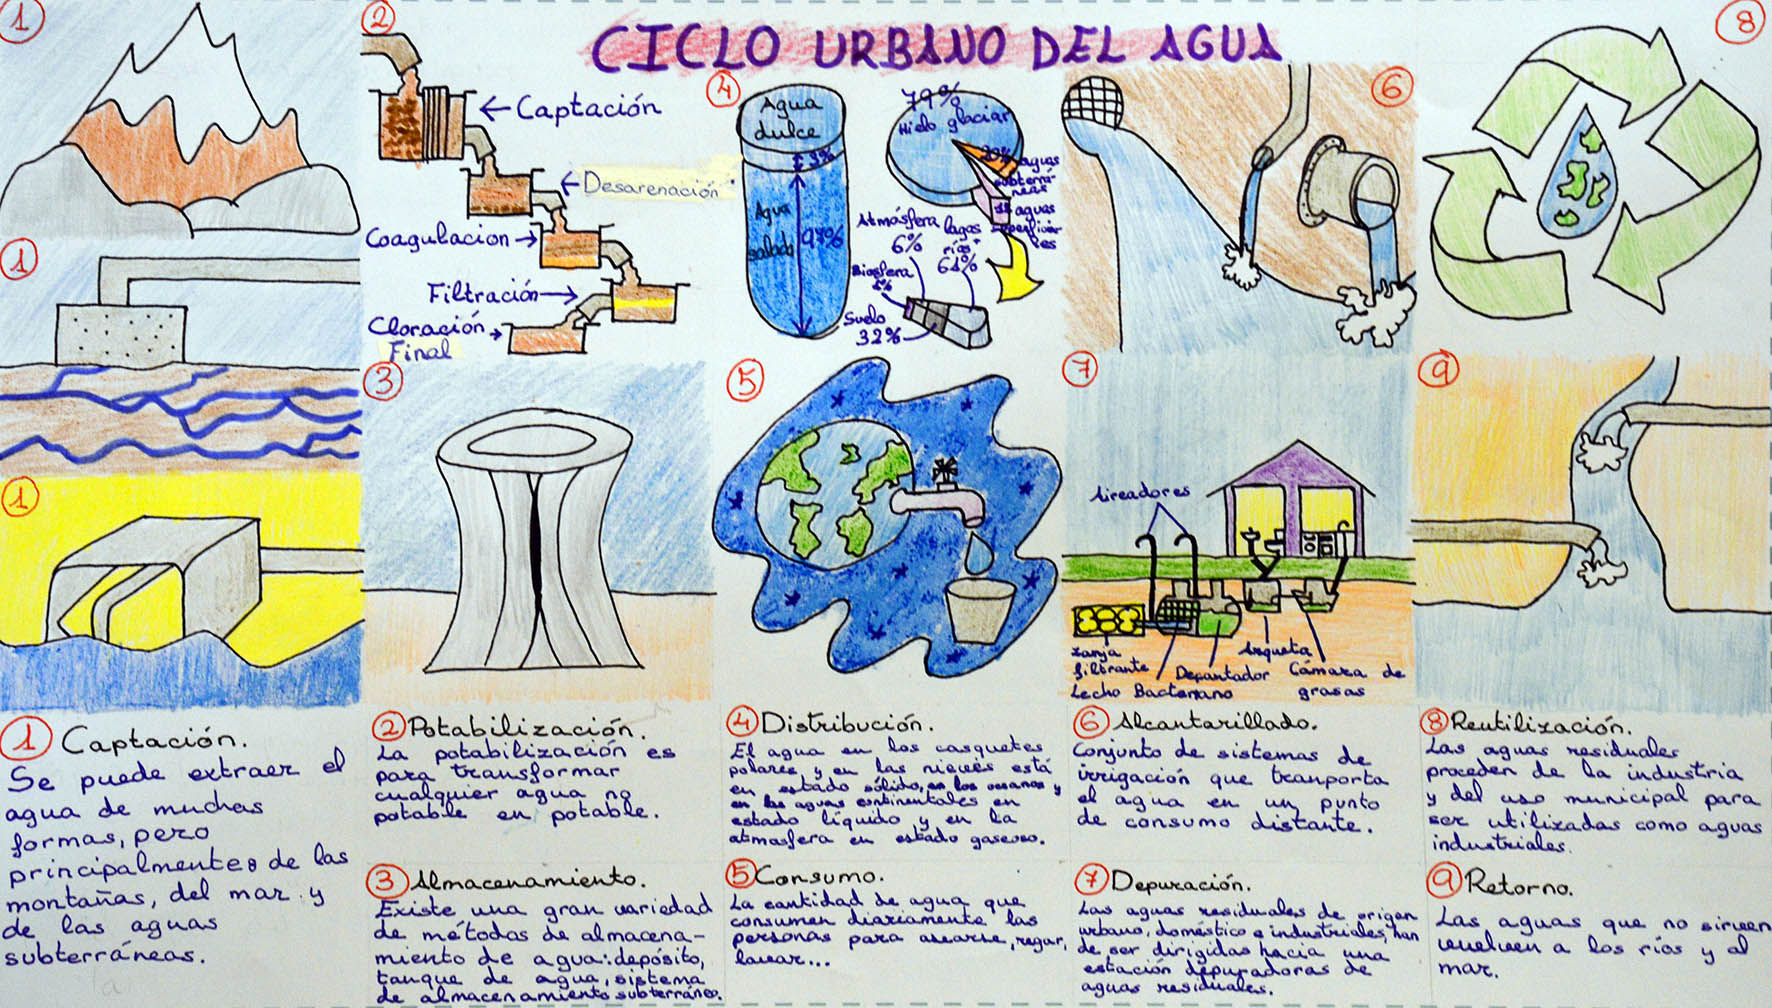 CICLO URBANO DEL AGUA
1
1
1
2
← Captación
← Desarenación
Coagulacion →
Filtración →
Cloración →
Final
3
4
Agua
dulce
3%
Agua
salada
97%
79%
Hielo glaciar
20% aguas
subterrá-
neas
1% aguas
superficia-
les
Atmósfera
6%
lagos
ríos
61%
Biosfera
1%
Suelo
32%
5
6
7
Aireadores
zanja
filtrante
Lecho Bacteriano
Decantador
Arqueta
Cámara de
grasas
8
9
1 Captación.
Se puede extraer el
agua de muchas
formas, pero
principalmente: de las
montañas, del mar y
de las aguas
subterráneas.
2 Potabilización.
La potabilización es
para transformar
cualquier agua no
potable en potable.
3 Almacenamiento.
Existe una gran variedad
de métodos de almacena-
miento de agua: depósito,
tanque de agua, sistema
de almacenamiento subterráneo.
4 Distribución.
El agua en los casquetes
polares y en las nieves está
en estado sólido, en los oceanos y
en las aguas continentales en
estado líquido y en la
atmosfera en estado gaseoso.
5 Consumo.
La cantidad de agua que
consumen diariamente las
personas para asearse, regar,
lavar...
6 Alcantarillado.
Conjunto de sistemas de
irrigación que tranporta
el agua en un punto
de consumo distante.
7 Depuración.
Las aguas residuales de origen
urbano, doméstico e industriales, han
de ser dirigidas hacia una
estación depuradoras de
aguas residuales.
8 Reutilización.
Las aguas residuales
proceden de la industria
y del uso municipal para
ser utilizadas como aguas
industriales.
9 Retorno.
Las aguas que no sirven
vuelven a los ríos y al
mar.